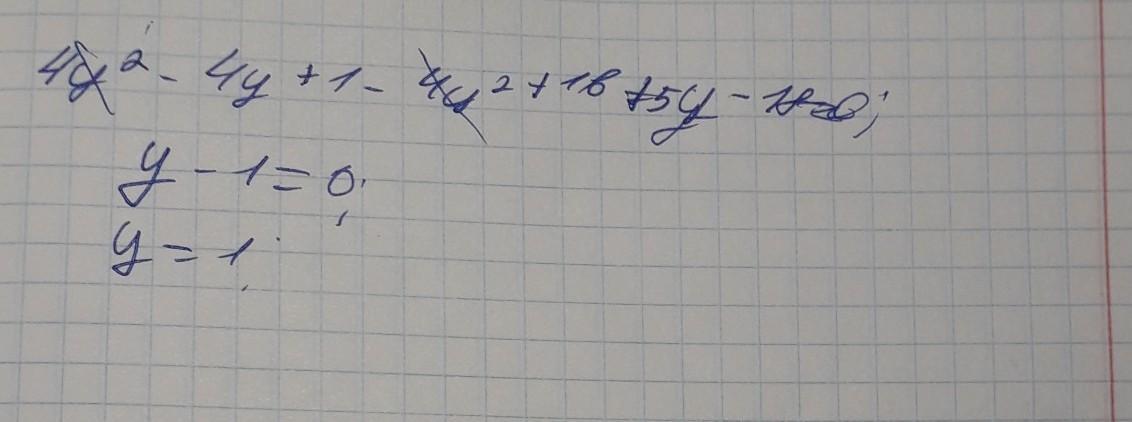 4y² - 4y + 1 - 4y² + 16 + 5y - 18 = 0;
y - 1 = 0;
y = 1.